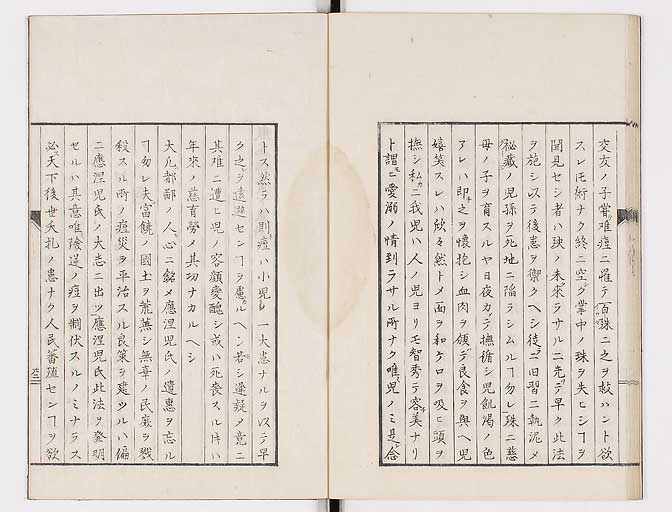 交友ノ子嘗難痘ニ罹テ百殊ニ之ヲ救ハント欲
スレ𪜈術ナク終ニ空ク掌中ノ珠ヲ失ヒシヿヲ
聞見セシ者ハ殃ノ未来ラサルニ先テ早ク此法
ヲ施シ以テ後患ヲ禦クヘシ徒ニ旧習ニ執泥メ
秘蔵ノ児孫ヲ死地ニ陥ラシムルヿ勿レ殊ニ慈
母ノ子ヲ育スルヤ日夜カテ撫循シ児飢渇ノ色
アレハ即之ヲ懐抱シ血肉ヲ頒デ良食ヲ與ヘ児
嬉笑スレハ欣々然トメ面ヲ和ケ口ヲ吸ヒ頭ヲ
撫シ私ニ我児ハ人ノ児ヨリモ智秀テ容美ナリ
ト謂ヒ愛溺ノ情到ラサル所ナク唯児ノミ是念
トス然ラハ則痘ハ小児ノ一大患ナルヲ以テ早
ク之ヲ遠避センヿヲ慮ルヘシ若シ遅疑メ竟ニ
其難ニ遭ヒ児ノ容顔変醜シ或ハ死喪スル片ハ
年来ノ慈育労メ其功ナカルヘシ
大凡都鄙ノ人心ニ銘メ應涅児氏ノ遺惠ヲ忘ル
ヿ勿レ夫富饒ノ國土ヲ荒蕪シ無辜ノ民庶ヲ戮
殺スル所ノ痘災ヲ平治スル良策ヲ建ツルハ偏
ニ應涅児氏ノ大志ニ出ツ應涅児氏此法ヲ発明
セルハ其意唯険逆ノ痘ヲ制伏スルノミナラス
必天下後世夭札ノ患ナク人民蕃殖センヿヲ欲